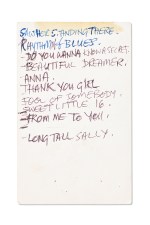 SAW HER STANDING THERE.
RHYTHM & BLUES.
- DO YOU WANNA KNOW A SECRET.
- BEAUTIFUL DREAMER.
- ANNA.
THANK YOU GIRL
FOOL OF SOMEBODY.
SWEET LITTLE 16.
FROM ME TO YOU.
- LONG TALL SALLY.